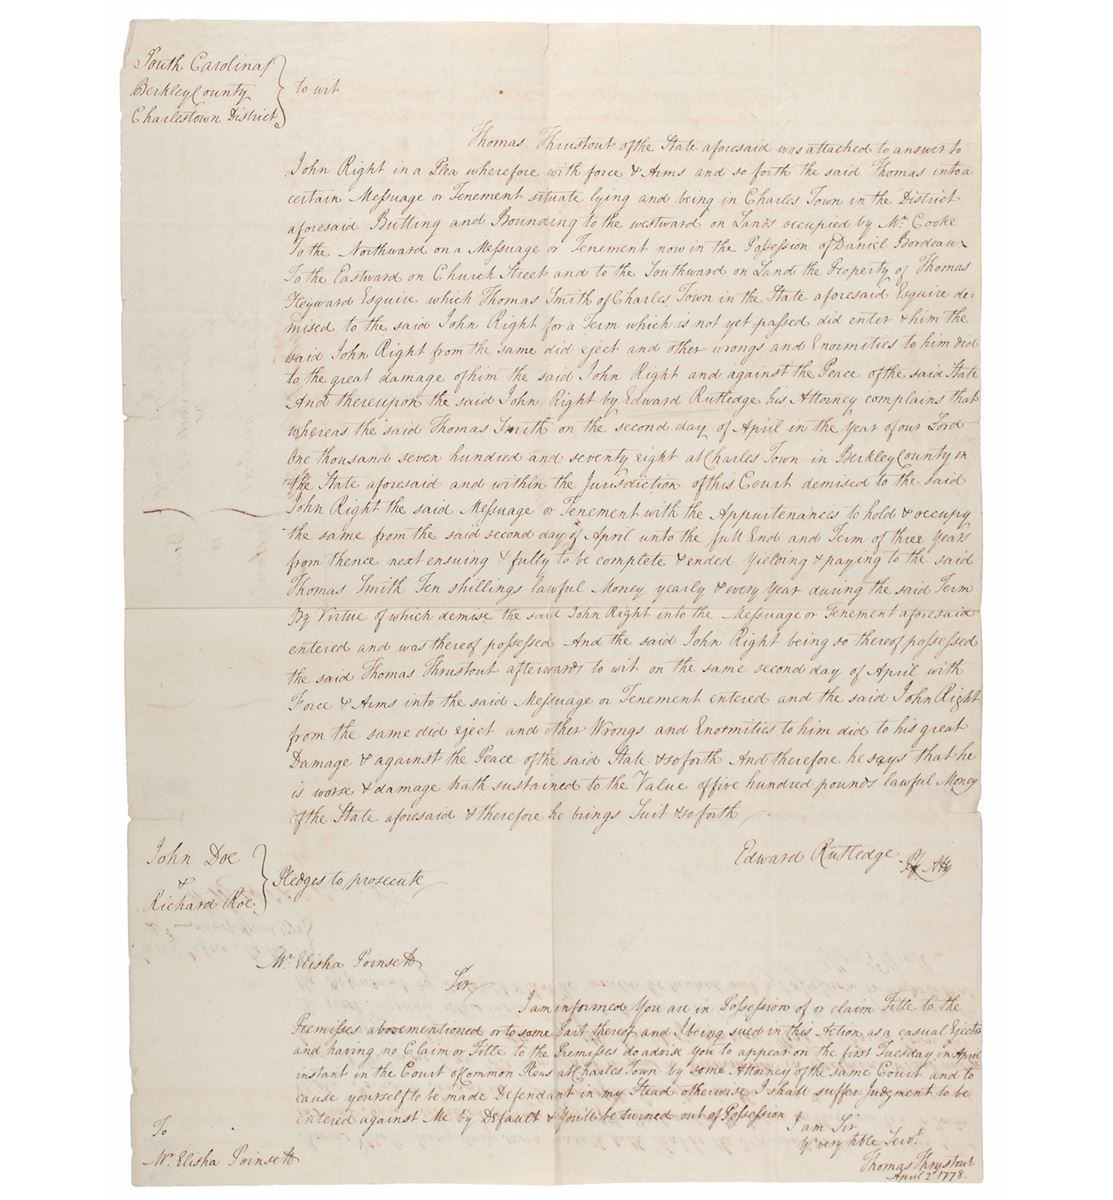 South Carolina
Berkley County
Charlestown District
to wit
Thomas Thrustout of the State aforesaid was attached to answer to
John Right in a Plea wherefore with force & Arms and so forth the said Thomas into a
certain Messuage or Tenement situate lying and being in Charles Town in the District
aforesaid Butting and Bounding to the westward on Lands occupied by Mr. Cooke
To the Northward on a Messuage or Tenement now in the Possession of Daniel Bordeaux
To the Eastward on Church Street and to the Southward on Land the Property of Thomas
Heyward Esquire which Thomas Smith of Charles Town in the State aforesaid Esquire de=
mised to the said John Right for a Term which is not yet passed did enter & him the
said John Right from the same did eject and other wrongs and Enormities to him did
to the great damage of him the said John Right and against the Peace of the said State
And thereupon the said John Right by Edward Rutledge his Attorney complains that
whereas the said Thomas Smith on the second day of April in the Year of our Lord
One thousand seven hundred and seventy eight at Charles Town in Berkley County in
the State aforesaid and within the Jurisdiction of this Court demised to the said
John Right the said Messuage or Tenement with the Appurtenances to hold & occupy
the same from the said second day of April unto the full End and Term of three Years
from thence next ensuing & fully to be complete & ended Yielding & paying to the said
Thomas Smith Ten shillings lawful Money yearly & every Year during the said Term
By Virtue of which demise the said John Right into the Messuage or Tenement aforesaid
entered and was thereof possessed And the said John Right being so thereof possessed
the said Thomas Thrustout afterwards to wit on the same second day of April with
Force & Arms into the said Messuage or Tenement entered and the said John Right
from the same did eject and other Wrongs and Enormities to him did to his great
Damage & against the Peace of the said State & so forth And therefore he says that he
is worse & damage hath sustained to the Value of five hundred pounds lawful Money
of the State aforesaid & therefore he brings Suit & so forth
Edward Rutledge Plf Atty
John Doe
&
Richard Roe
Pledges to prosecute
Mr. Elisha Poinsett
Sir
I am informed You are in Possession of or claim Title to the
Premisses abovementioned or to some Part thereof and I being sued in this Action as a casual Ejector
and having no Claim or Title to the Premisses do advise You to appear on the first Tuesday in April
instant in the Court of Common Pleas at Charles Town by some Attorney of the same Court and to
cause yourself to be made Defendant in my Stead otherwise I shall suffer Judgment to be
entered against Me by Default & You'll be turned out of Possession
I am Sir
Yr. very hble Servt.
Thomas Thrustout
April 2d 1778.
To
Mr. Elisha Poinsett